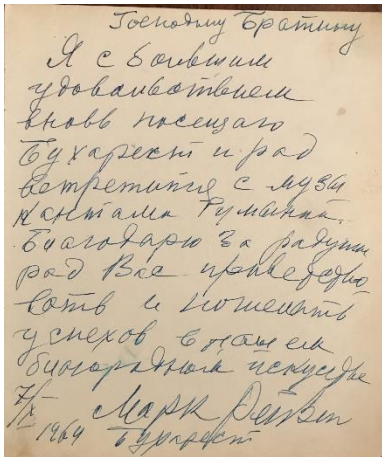 Господину Братину
Я с большим
удовольствием
вновь посещаю
Бухарест и рад
встретиться с музы
кантами Румынии.
Благодарю за радушие
рад Вас приветство
вать и пожелать
успехов в нашем
благородном искусстве
Марк Рейзен
7/X 1964 Бухарест